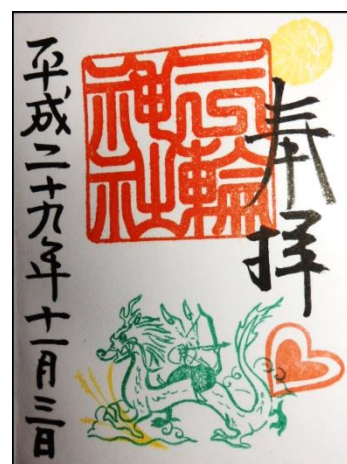 奉拝
三輪
神社
平成二十九年十一月三日